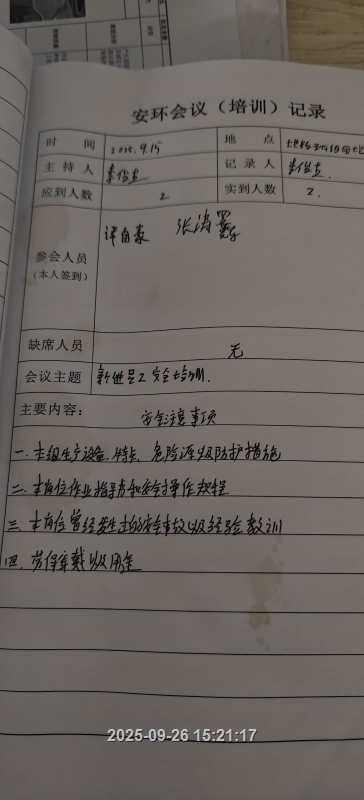 安环会议（培训）记录
时 间 2025.9.15 地 点
主 持 人 记 录 人
应到人数 2 实到人数 2.
参会人员
(本人签到)
缺席人员 无
会议主题 新进员工安全培训.
主要内容： 安全注意事项
一. 本组生产设备、特点、危险源以及防护措施
二. 本岗位作业指导书和安全操作规程
三. 本岗位曾经发生过的安全事故以及经验教训
四. 劳保穿戴以及用途
2025-09-26 15:21:17